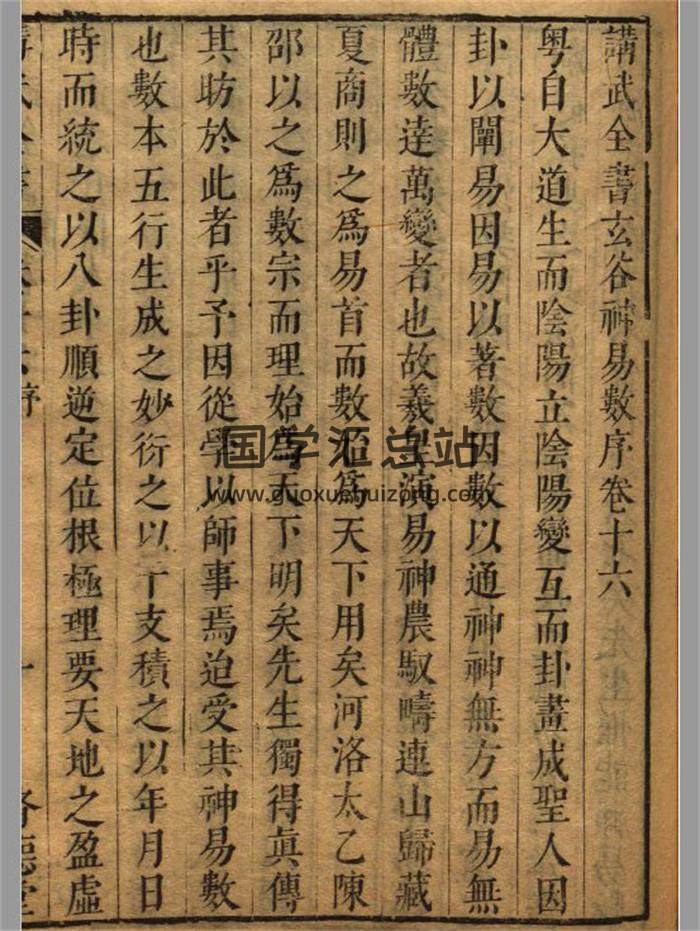 講武全書玄谷神易數序卷十六
粤自大道生而陰陽立陰陽變互而卦畫成聖人因
卦以闡易因易以著數因數以通神神無方而易無
體數達萬變者也故羲皇演易神農馭疇連山歸藏
夏商則之爲易首而數始爲天下用矣河洛太乙陳
邵以之爲數宗而理始爲天下明矣先生獨得眞傳
其昉於此者乎予因從學以師事焉迨受其神易數
也數本五行生成之妙衍之以干支積之以年月日
時而統之以八卦順逆定位根極理要天地之盈虛
序
一
国学汇总站
www.guoxuehuizong.com